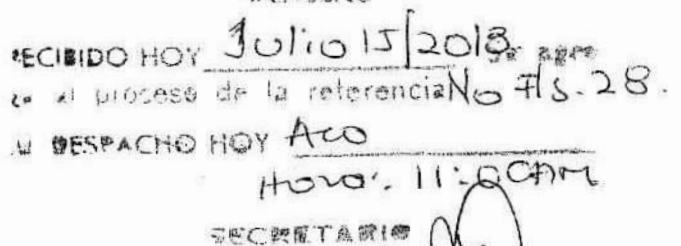 RECIBIDO HOY Julio 15/2013 Se agre
ga al proceso de la referencia No Fls. 28.
AL DESPACHO HOY
Hora: 11:00AM
SECRETARIO